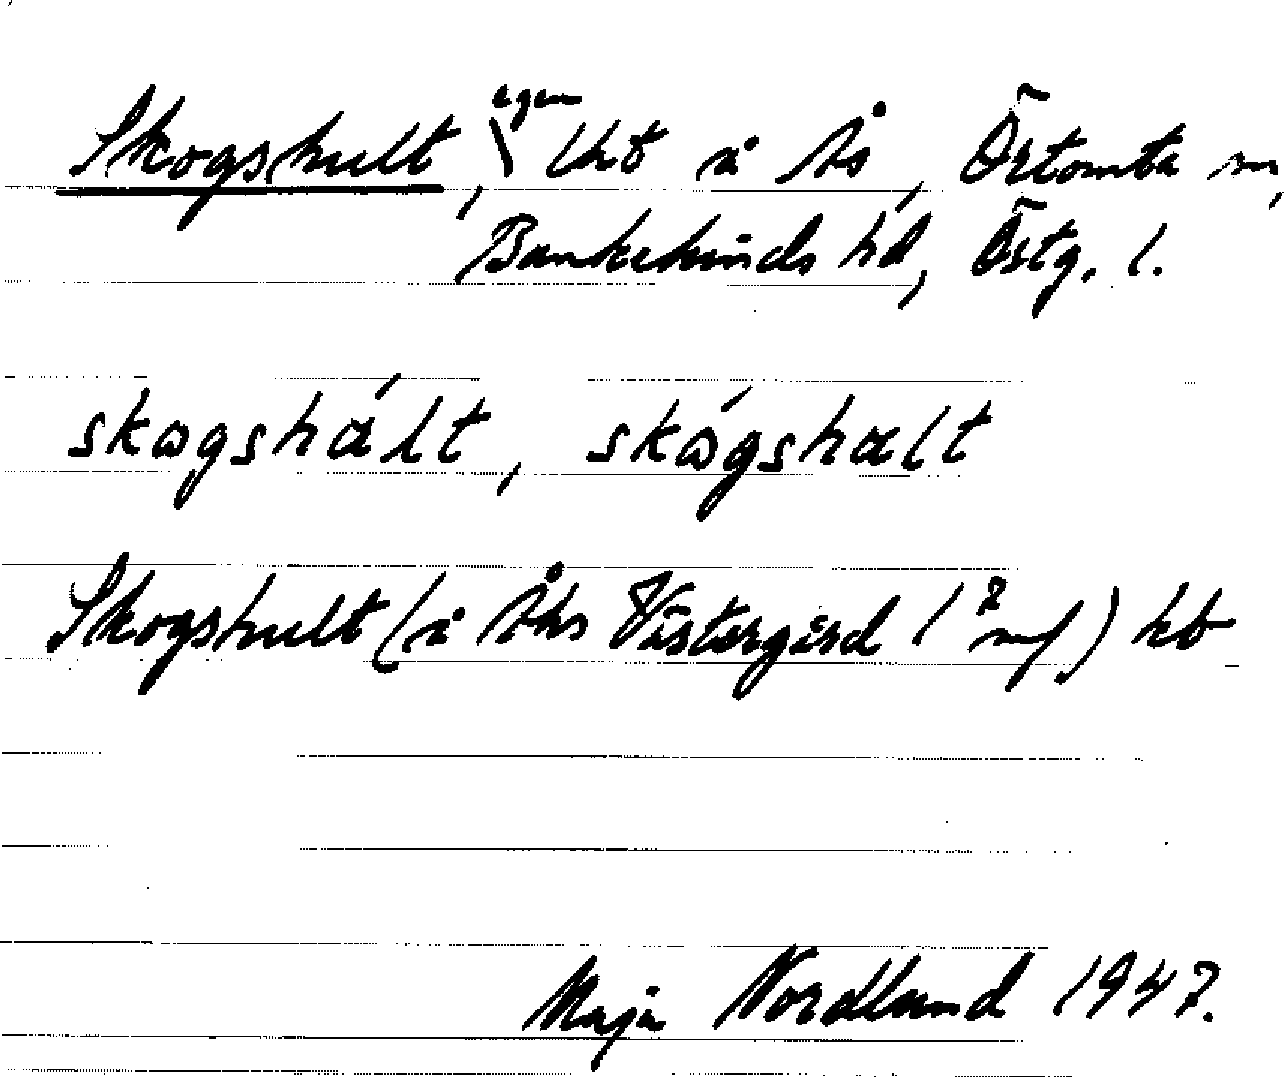 Skogshult, egen Uht å Ås, Örtomta sn,
Bankekinds hd, Östg. l.
skogshált, skógshalt
Skogshult (å Åhs Västergård 1/2 mf) hb
Maja Nordlund 1947.